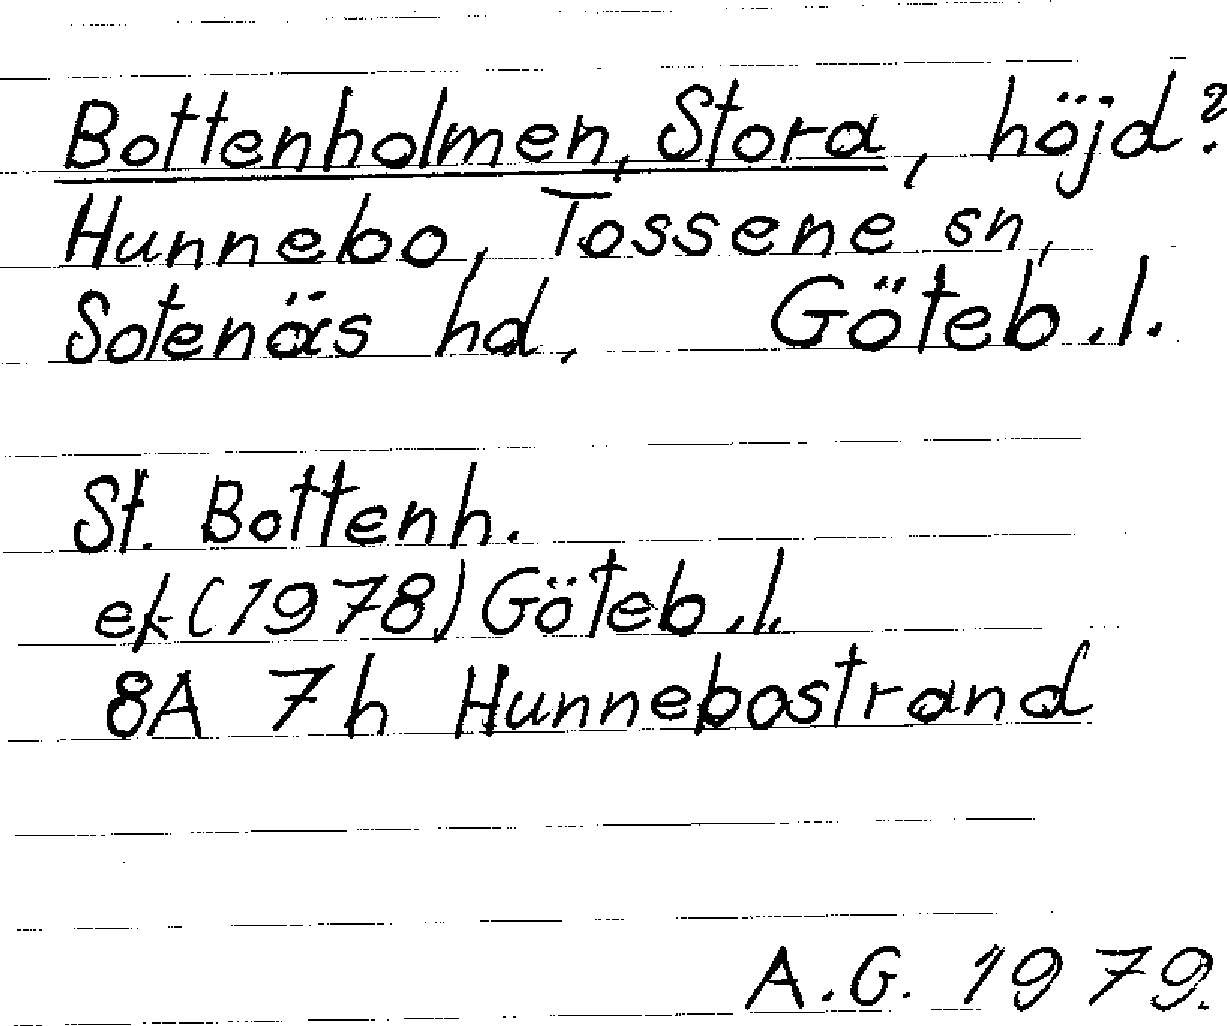 Bottenholmen, Stora, höjd?
Hunnebo, Tossene sn,
Sotenäs hd. Göteb.l.
St. Bottenh.
ek (1978) Göteb.l.
8A 7h Hunnebostrand
A.G. 1979.